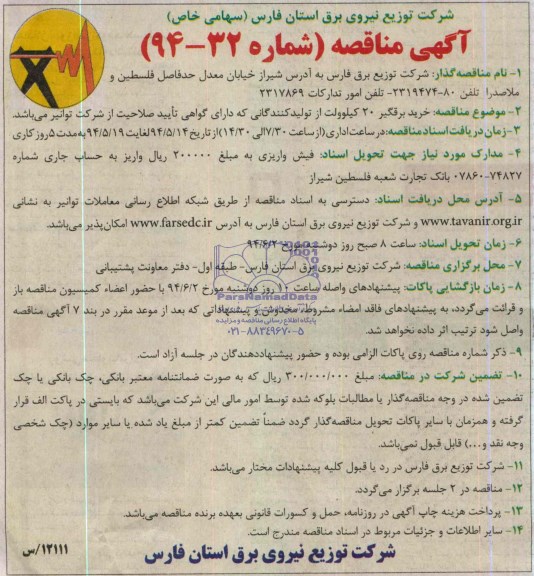 شرکت توزیع نیروی برق استان فارس (سهامی خاص)
آگهی مناقصه (شماره ۳۲-۹۴)
۱- نام مناقصه‌گذار: شرکت توزیع برق فارس به آدرس شیراز خیابان معدل حدفاصل فلسطین و
ملاصدرا تلفن ۸۰-۲۳۱۹۴۷۴- تلفن امور تدارکات ۲۳۱۷۸۶۹
۲- موضوع مناقصه: خرید برقگیر ۲۰ کیلوولت از تولیدکنندگانی که دارای گواهی تأیید صلاحیت از شرکت توانیر می‌باشد.
۳- زمان دریافت اسناد مناقصه: در ساعت اداری (از ساعت ۷/۳۰ الی ۱۴/۳۰) از تاریخ ۹۴/۵/۱۴ لغایت ۹۴/۵/۱۹ به مدت ۵ روز کاری
۴- مدارک مورد نیاز جهت تحویل اسناد: فیش واریزی به مبلغ ۲۰۰۰۰۰ ریال واریز به حساب جاری شماره
۷۴۸۲۷-۰۷۸۶۰ بانک تجارت شعبه فلسطین شیراز
۵- آدرس محل دریافت اسناد: دسترسی به اسناد مناقصه از طریق شبکه اطلاع رسانی معاملات توانیر به نشانی
www.tavanir.org.ir و شرکت توزیع نیروی برق استان فارس به آدرس www.farsedc.ir امکان‌پذیر می‌باشد.
۶- زمان تحویل اسناد: ساعت ۸ صبح روز دوشنبه مورخ ۹۴/۶/۲
۷- محل برگزاری مناقصه: شرکت توزیع نیروی برق استان فارس- طبقه اول- دفتر معاونت پشتیبانی
۸- زمان بازگشایی پاکات: پیشنهادهای واصله ساعت ۱۰ روز دوشنبه مورخ ۹۴/۶/۲ با حضور اعضاء کمیسیون مناقصه باز
و قرائت می‌گردد، به پیشنهادهای فاقد امضاء مشروط، مخدوش و پیشنهاداتی که بعد از موعد مقرر در بند ۷ آگهی مناقصه
واصل شود ترتیب اثر داده نخواهد شد.
۹- ذکر شماره مناقصه روی پاکات الزامی بوده و حضور پیشنهاددهندگان در جلسه آزاد است.
۱۰- تضمین شرکت در مناقصه: مبلغ ۳۰۰/۰۰۰/۰۰۰ ریال که به صورت ضمانتنامه معتبر بانکی، چک بانکی یا چک
تضمین شده در وجه مناقصه‌گذار یا مطالبات بلوکه شده توسط امور مالی این شرکت می‌باشد که بایستی در پاکت الف قرار
گرفته و همزمان با سایر پاکات تحویل مناقصه‌گذار گردد ضمناً تضمین کمتر از مبلغ یاد شده یا سایر موارد (چک شخصی
وجه نقد و...) قابل قبول نمی‌باشد.
۱۱- شرکت توزیع برق فارس در رد یا قبول کلیه پیشنهادات مختار می‌باشد.
۱۲- مناقصه در ۲ جلسه برگزار می‌گردد.
۱۳- پرداخت هزینه چاپ آگهی در روزنامه، حمل و کسورات قانونی بعهده برنده مناقصه می‌باشد.
۱۴- سایر اطلاعات و جزئیات مربوط در اسناد مناقصه مندرج است.
۱۲۱۱۱/س
شرکت توزیع نیروی برق استان فارس
ParsNamadData
پایگاه اطلاع رسانی مناقصه و مزایده
۰۲۱-۸۸۳۴۹۶۷۰-۵